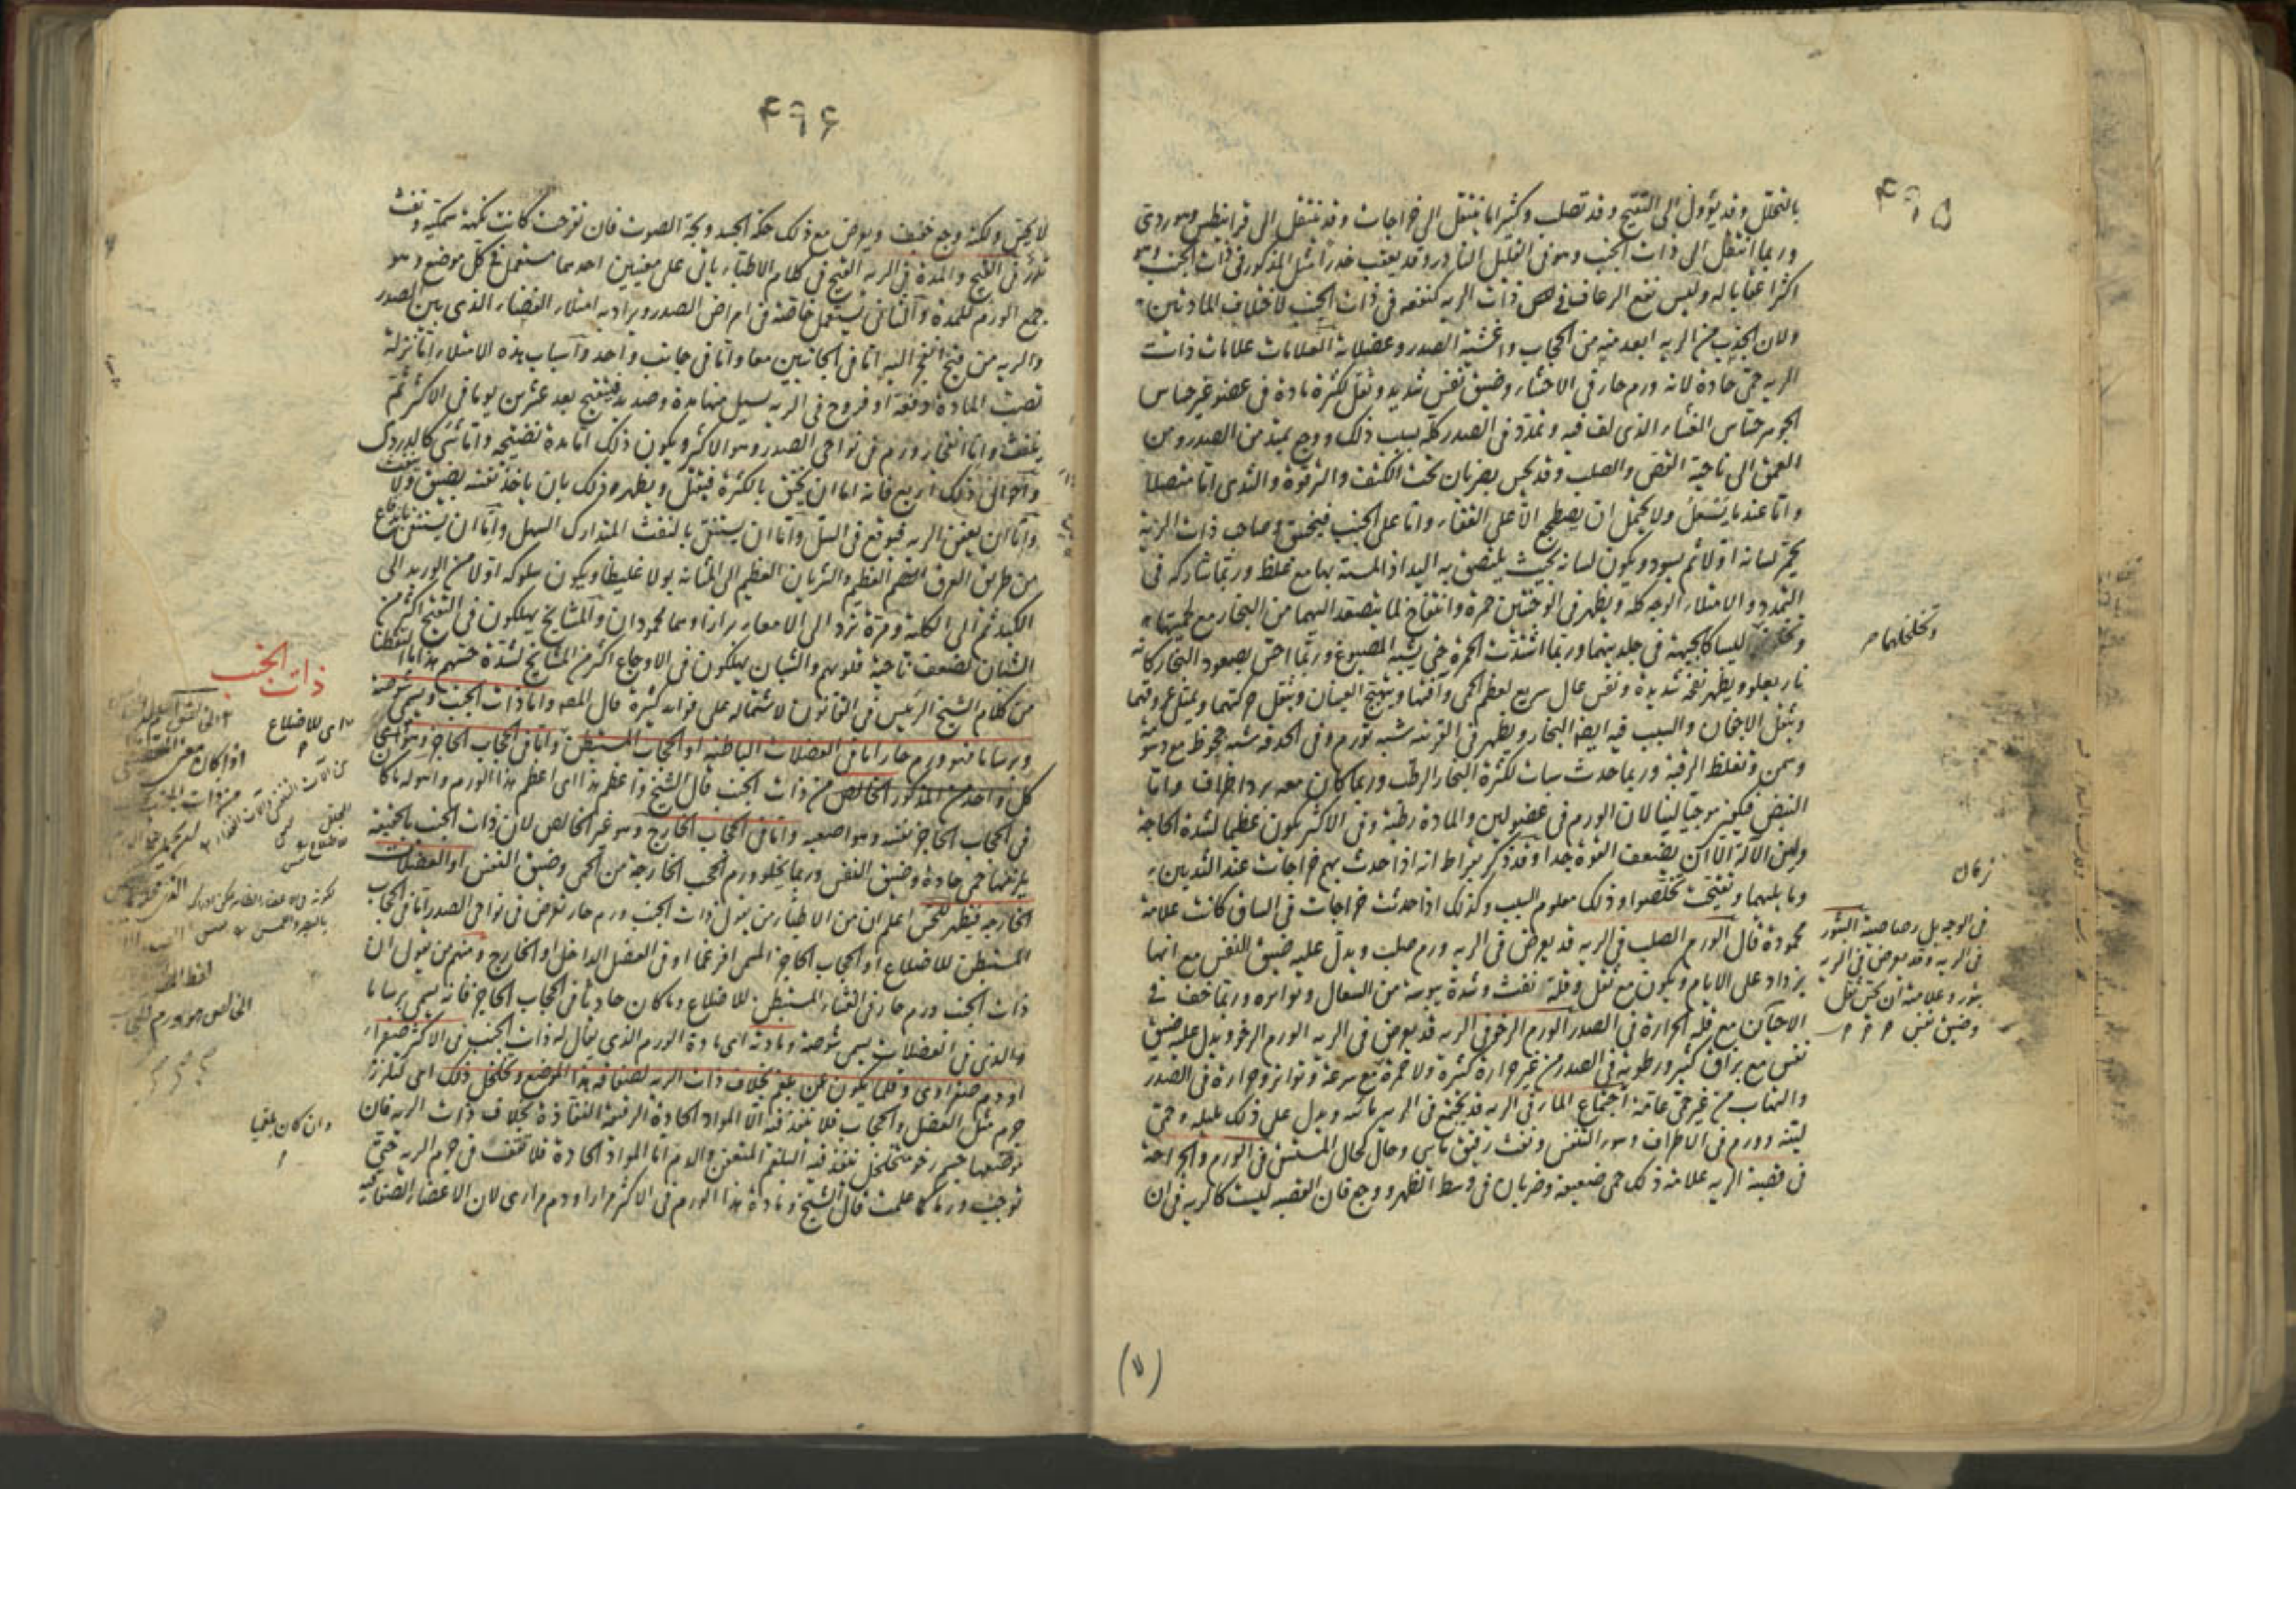 ۴۹۵
بالتحلل وقد يؤول الى التقيح وقد تصلب وكثيرا ما ينتقل الى خراجات وقد ينتقل الى قرانيطس وهو ردى
وربما انتقل الى ذات الجنب وهو فى القليل النادر وقد يعقب خدرا مثل المذكور فى ذات الجنب وهو
اكثر اعقابا له وليس نفع الرعاف فى ذات الريه كنفعه فى ذات الجنب لاختلاف المادتين
ولان الجذب من الريه ابعد منه من الحجاب واغشية الصدر وعضلاته العلامات علامات ذات
الريه حمى حادة لانه ورم حار فى الاحشاء وضيق نفس شديد وثقل لكثرة مادة فى عضو غير حساس
الجوهر حساس الغشاء الذى لف فيه وتمدد فى الصدر كله بسبب ذلك ووجع يمتد من الصدر ومن
العمق الى ناحية القص والصلب وقد يحس بضربان تحت الكتف والترقوة والثدى اما متصلا
واما عندما يسعل ولا يحتمل ان يضطجع الا على القفاء واما على الجنب فيختنق وصاحب ذات الرية
يحمر لسانه اولا ثم يسود ويكون لسانه بحيث يلتصق به اليد اذا لمسته بها مع غلظ وربما شاركه فى
التمدد والامتلاء الوجه كله ويظهر فى الوجنتين حمرة وانتفاخ لما يتصعد اليهما من البخار مع لحميتهما
ليسا كالجبهة فى جلديتهما وربما اشتدت الحمرة حتى يشبه المصبوغ وربما احس بصعود البخار كانه
نار يعلو ويظهر نفخة شديدة ونفس عال سريع لعظم الحمى وآفتها ويتهيج العينان ويثقل حركتهما ويمتلئ عروقهما
ويثقل الاجفان والسبب فيه ايضا البخار ويظهر فى القرنية شبه تورم وفى الحدقه شبه جحوظ مع دسومة
وسمن وتغلظ الرقبة وربما حدث سبات لكثرة البخار الرطب وربما كان معه برد اطراف واما
النبض فيكون موجيا لينا لان الورم فى عضو لين والمادة رطبة وفى الاكثر يكون عظيما لشدة الحاجة
ولين الآلة الا ان يضعف القوة جدا وقد ذكر بقراط انه اذا حدث بهم خراجات عند الثديين
وما يليهما وتفتحت تخلصوا وذلك معلوم السبب وكذلك اذا حدثت خراجات فى الساق كانت علامة
محمودة قال الورم الصلب فى الريه قد يعرض فى الريه ورم صلب ويدل عليه ضيق النفس مع انها
يزداد على الايام ويكون مع ثقل وقلة نفث وشدة يبوسة من السعال وتواتره وربما خف فى
الاحيان مع قلة الحرارة فى الصدر الورم الرخو فى الريه قد يعرض فى الريه الورم الرخو ويدل عليه ضيق
نفس مع بزاق كثير ورطوبة فى الصدر من غير حرارة كثيرة ولا حمرة مع سرعة وتواتر وحرارة فى الصدر
والتهاب من غير حمى عامة اجتماع الماء فى الريه قد يجتمع فى الريه مائية ويدل على ذلك مليله وحمى
لينة وورم فى الاطراف وسوء التنفس ونفث رقيق مايى وحال كحال المستسقى فى الورم والجراحة
فى قصبة الريه علامة ذلك حمى ضعيفة وضربان فى وسط الظهر ووجع فان القصبه ليست كالريه فى ان
وتخلخلهما
زمان
فى الوجه بل رصاصية البثور
فى الريه وقد يعرض فى الريه
بثور وعلامته ان يحس ثقل
وضيق نفس
(٧)
۴۹۶
لا يحس ولكنه وجع خفيف ويعرض مع ذلك حكة الجسد وبحة الصوت فان تقرحت كانت نكهته سمكية ونفث
فى القيح والمدة فى الريه القيح فى كلام الاطباء ياتى على معنيين احدهما مستعمل فى كل موضع وهو
جمع الورم للمدة والثانى يستعمل خاصة فى امراض الصدر ويراد به امتلاء الفضاء الذى بين الصدر
والريه من قيح انفجر اليه اما فى الجانبين معا واما فى جانب واحد واسباب هذه الامتلاء اما نزلة
تصب المادة دفعة او قروح فى الريه تسيل منها مدة وصديد فيتقيح بعد عشرين يوما فى الاكثر ثم
ينفث واما انفجار ورم فى نواحى الصدر وهو الاكثر ويكون ذلك اما مدة نضيجة واما شى كالدردى
واحوال ذلك اربع فانه اما ان يخنق بالكثرة فيقتل ويظهر ذلك بان ياخذ نفسه يضيق ولا ينفث
واما ان يعفن الريه فيوقع فى السل واما ان يستنقى بالنفث المتدارك السهل واما ان يستنقى باندفاع
من طريق العرق العظيم والشريان العظيم الى المثانة بولا غليظا ويكون سلوكه اولا من الوريد الى
الكبد ثم الى الكلية ومرة ترد الى الامعاء برازا وهما محمودان والمشايخ يهلكون فى التقيح اكثر من
الشبان لضعف ناحية قلوبهم والشبان يهلكون فى الاوجاع اكثر من المشايخ لشدة حسهم هذا ما التقطنا
من كلام الشيخ الرئيس فى القانون لاشتماله على فوائد كثيرة قال المصـ واما ذات الجنب ويسمى شوصة
وبرساما فهو ورم حار اما فى العضلات الباطنية او الحجاب المستبطن واما فى الحجاب الحاجز وهو اى
كل واحد من المذكور الخالص من ذات الجنب قال الشيخ واعظم هذا اى اعظم هذا الورم واهوله ما كان
فى الحجاب الحاجز نفسه وهو اصعبه واما فى الحجاب الخارج وهو غير الخالص لان ذات الجنب بالحقيقة
يلزمها حمى حادة وضيق النفس وربما يخلو ورم الحجب الخارجة من الحمى وضيق النفس او العضلات
الخارجه فيظهر للحس اعلم ان من الاطباء من يقول ذات الجنب ورم حار يعرض فى نواحى الصدر اما فى الحجاب
المستبطن للاضلاع او الحجاب الحاجز المسمى افرغما او فى العضل الداخل او الخارج ومنهم من يقول ان
ذات الجنب ورم حار فى الغشاء المستبطن للاضلاع وما كان حادثا فى الحجاب الحاجز فانه يسمى برساما
والذى فى العضلات يسمى شوصة ومادته اى مادة الورم الذى يقال له ذات الجنب فى الاكثر صفراء
او دم صفراوى وقلما يكون عن بلغم بخلاف ذات الريه لصفاقه هذا الموضع وتخلخل ذلك اى تلزز
جرم مثل العضل والحجاب فلا تنفذ فيه الا المواد الحادة الرقيقة النفاذة بخلاف ذات الريه فان
موضعها جسم رخو متخلخل ينفذ فيه البلغم المتعفن والدم اما المواد الحادة فلا تقف فى جرم الريه حتى
توجب ورما كما علمت قال الشيخ ومادة هذا الورم فى الاكثر مرار او دم مرارى لان الاعضاء الصفاقية
ذات الجنب
اى للاضلاع
الخالص هو ورم الحجاب
وان كان بلغميا